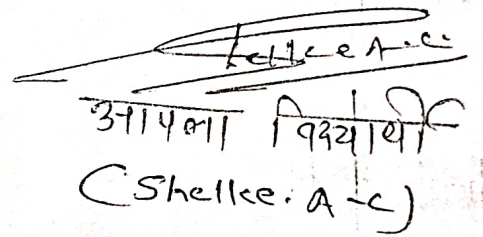 Shelke A.C.
आपला विद्यार्थी
(Shelke. A-C)